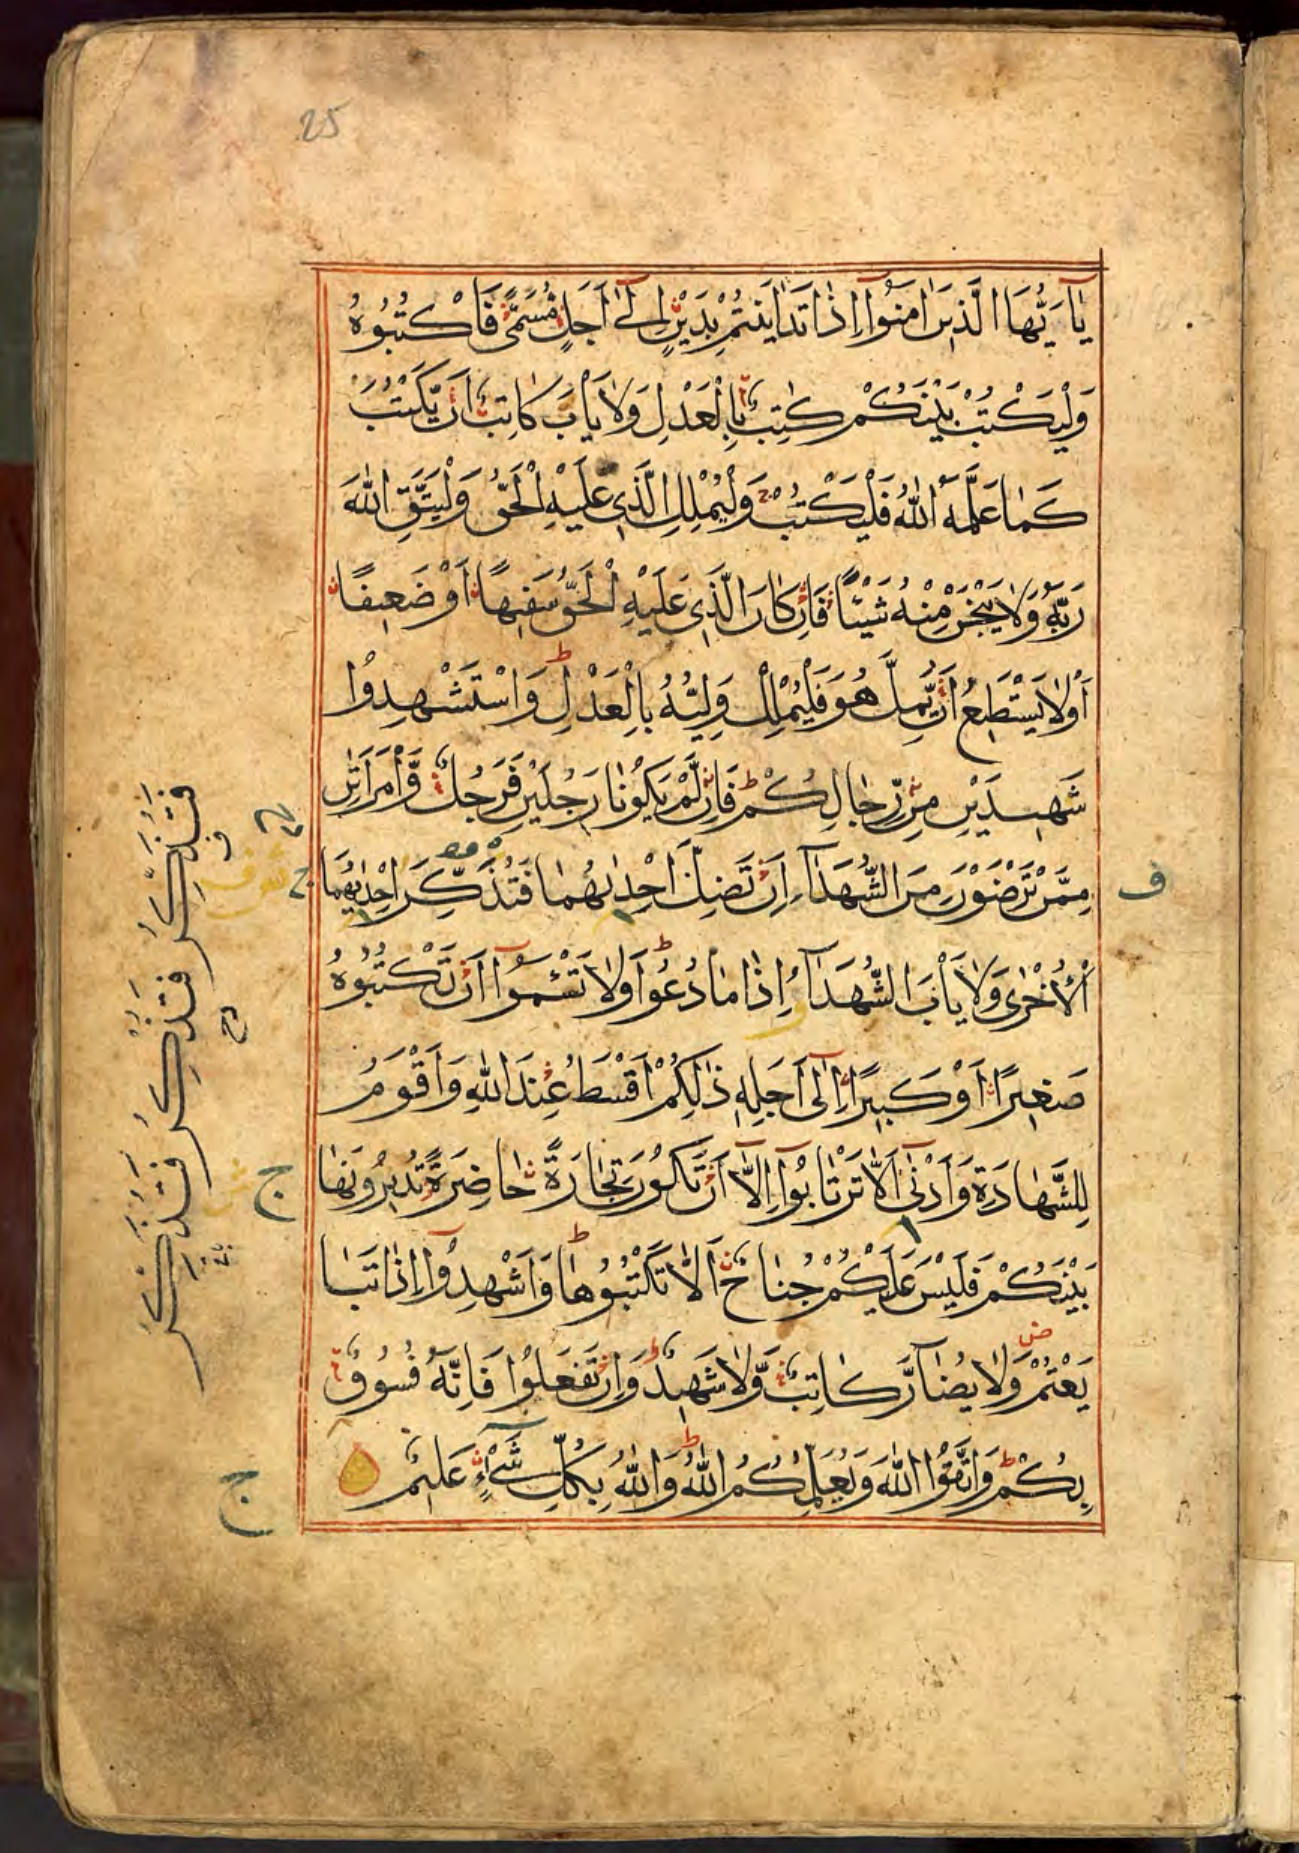 25
يٰٓاَيُّهَا الَّذِينَ اٰمَنُوٓا اِذَا تَدَايَنْتُمْ بِدَيْنٍ اِلٰٓى اَجَلٍ مُسَمًّى فَاكْتُبُوهُ
وَلْيَكْتُبْ بَيْنَكُمْ كَاتِبٌ بِالْعَدْلِ وَلَا يَأْبَ كَاتِبٌ اَنْ يَّكْتُبَ
كَمَا عَلَّمَهُ اللّٰهُ فَلْيَكْتُبْ وَلْيُمْلِلِ الَّذِى عَلَيْهِ الْحَقُّ وَلْيَتَّقِ اللّٰهَ
رَبَّهُ وَلَا يَبْخَسْ مِنْهُ شَيْئًا فَاِنْ كَانَ الَّذِى عَلَيْهِ الْحَقُّ سَفِيهًا اَوْ ضَعِيفًا
اَوْ لَا يَسْتَطِيعُ اَنْ يُّمِلَّ هُوَ فَلْيُمْلِلْ وَلِيُّهُ بِالْعَدْلِ وَاسْتَشْهِدُوا
شَهِيدَيْنِ مِنْ رِّجَالِكُمْ فَاِنْ لَّمْ يَكُونَا رَجُلَيْنِ فَرَجُلٌ وَّامْرَاَتٰنِ
مِمَّنْ تَرْضَوْنَ مِنَ الشُّهَدَآءِ اِنْ تَضِلَّ اِحْدٰىهُمَا فَتُذَكِّرَ اِحْدٰىهُمَا
الْاُخْرٰى وَلَا يَأْبَ الشُّهَدَآءُ اِذَا مَا دُعُوا وَلَا تَسْئَمُوٓا اَنْ تَكْتُبُوهُ
صَغِيرًا اَوْ كَبِيرًا اِلٰٓى اَجَلِهِ ذٰلِكُمْ اَقْسَطُ عِنْدَ اللّٰهِ وَاَقْوَمُ
لِلشَّهَادَةِ وَاَدْنٰٓى اَلَّا تَرْتَابُوٓا اِلَّآ اَنْ تَكُونَ تِجَارَةً حَاضِرَةً تُدِيرُونَهَا
بَيْنَكُمْ فَلَيْسَ عَلَيْكُمْ جُنَاحٌ اَلَّا تَكْتُبُوهَا وَاَشْهِدُوٓا اِذَا تَبَا
يَعْتُمْ وَلَا يُضَآرَّ كَاتِبٌ وَّلَا شَهِيدٌ وَاِنْ تَفْعَلُوا فَاِنَّهُ فُسُوقٌ
بِكُمْ وَاتَّقُوا اللّٰهَ وَيُعَلِّمُكُمُ اللّٰهُ وَاللّٰهُ بِكُلِّ شَىْءٍ عَلِيمٌ
ف
ج
ج
ج
فَتُذَكِّرُ فَتُذْكِرُ فَتُذَكِّرَ